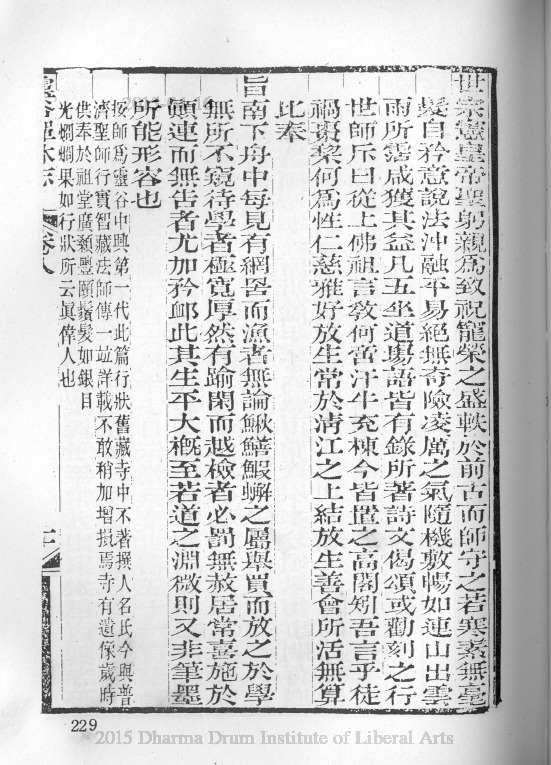 世宗憲皇帝聖躬親爲致祝寵榮之盛軼於前古而師守之若寒素無毫
髮自矜意說法沖融平易絕無奇險凌厲之氣隨機敷暢如連山出雲
雨所霑咸獲其益凡五坐道場語皆有錄所著詩文偈頌或勸刻之行
世師斥曰從上佛祖言教何啻汗牛充棟今皆置之高閣矧吾言乎徒
禍棗棃何爲性仁慈雅好放生常於清江之上結放生善會所活無算
比奉
旨南下舟中每見有網罟而漁者無論鰍鱔鰕蠏之屬舉買而放之於學
無所不窺待學者極寬厚然有踰閑而越檢者必罰無赦居常喜施於
顛連而無告者尤加矜卹此其生平大槪至若道之淵微則又非筆墨
所能形容也
按師爲靈谷中興第一代此篇行狀舊藏寺中不著撰人名氏今與普
濟聖師行實智藏法師傳一竝詳載不敢稍加增損焉寺有遺像歲時
供奉於祖堂廣顙豐頤鬚髮如銀目
光烱烱果如行狀所云眞偉人也
靈谷禪林志
卷八
229
©2015 Dharma Drum Institute of Liberal Arts